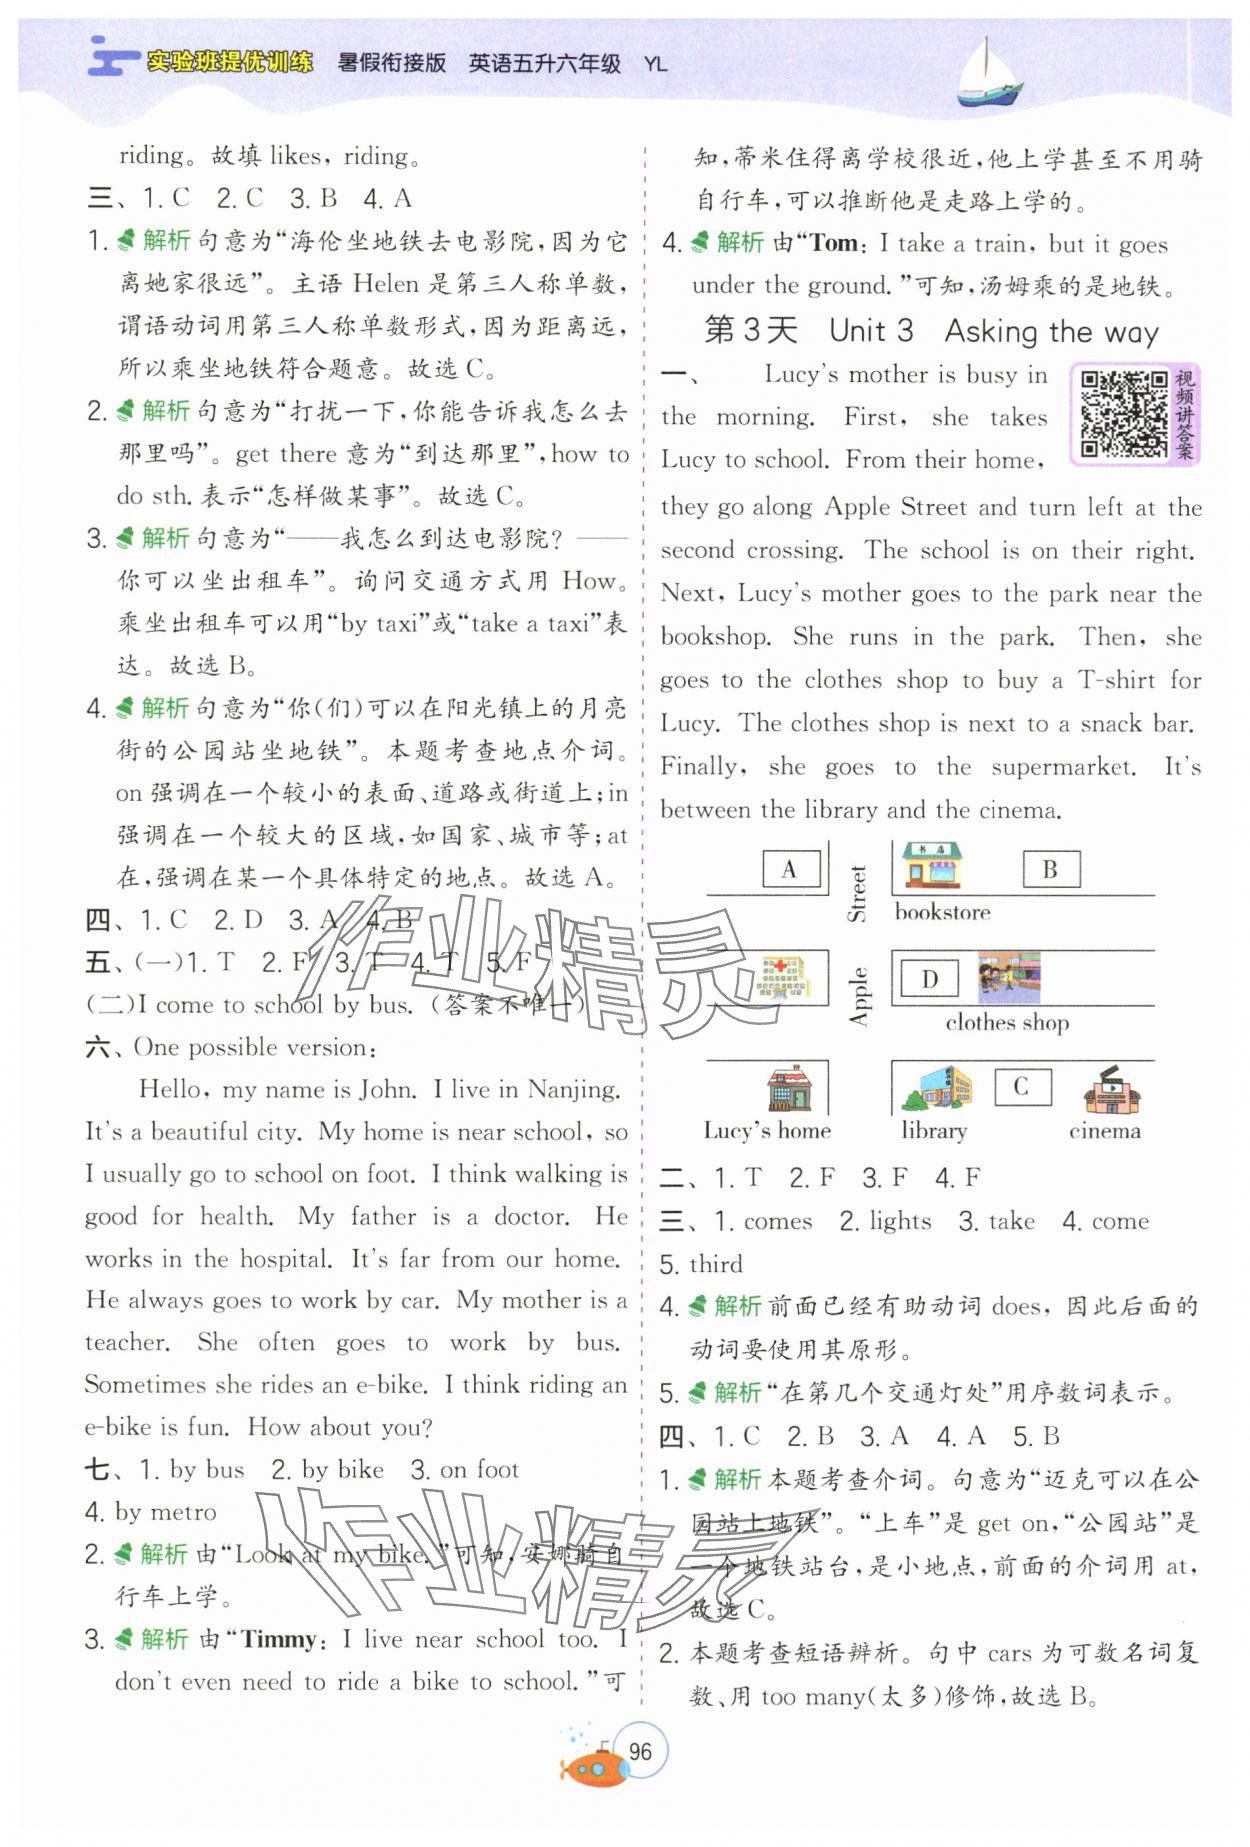 实验班提优训练 暑假衔接版 英语五升六年级 YL
riding。故填 likes, riding。
三、1. C 2. C 3. B 4. A
1. 解析 句意为“海伦坐地铁去电影院,因为它
离她家很远”。主语 Helen 是第三人称单数,
谓语动词用第三人称单数形式,因为距离远,
所以乘坐地铁符合题意。故选 C。
2. 解析 句意为“打扰一下,你能告诉我怎么去
那里吗”。get there 意为“到达那里”,how to
do sth. 表示“怎样做某事”。故选 C。
3. 解析 句意为“——我怎么到达电影院? ——
你可以坐出租车”。询问交通方式用 How。
乘坐出租车可以用“by taxi”或“take a taxi”表
达。故选 B。
4. 解析 句意为“你(们)可以在阳光镇上的月亮
街的公园站坐地铁”。本题考查地点介词。
on 强调在一个较小的表面、道路或街道上;in
强调在一个较大的区域,如国家、城市等;at
在,强调在某一个具体特定的地点。故选 A。
四、1. C 2. D 3. A 4. B
五、(一)1. T 2. F 3. T 4. T 5. F
(二)I come to school by bus. (答案不唯一)
六、One possible version:
Hello, my name is John. I live in Nanjing.
It's a beautiful city. My home is near school, so
I usually go to school on foot. I think walking is
good for health. My father is a doctor. He
works in the hospital. It's far from our home.
He always goes to work by car. My mother is a
teacher. She often goes to work by bus.
Sometimes she rides an e-bike. I think riding an
e-bike is fun. How about you?
七、1. by bus 2. by bike 3. on foot
4. by metro
2. 解析 由“Look at my bike.”可知,安娜骑自
行车上学。
3. 解析 由“Timmy: I live near school too. I
don't even need to ride a bike to school.”可
知,蒂米住得离学校很近,他上学甚至不用骑
自行车,可以推断他是走路上学的。
4. 解析 由“Tom: I take a train, but it goes
under the ground.”可知,汤姆乘的是地铁。
第3天 Unit 3 Asking the way
一、 Lucy's mother is busy in
the morning. First, she takes
Lucy to school. From their home,
视频讲答案
they go along Apple Street and turn left at the
second crossing. The school is on their right.
Next, Lucy's mother goes to the park near the
bookshop. She runs in the park. Then, she
goes to the clothes shop to buy a T-shirt for
Lucy. The clothes shop is next to a snack bar.
Finally, she goes to the supermarket. It's
between the library and the cinema.
A
书店
B
bookstore
Apple Street
D
clothes shop
C
Lucy's home library cinema
二、1. T 2. F 3. F 4. F
三、1. comes 2. lights 3. take 4. come
5. third
4. 解析 前面已经有助动词 does,因此后面的
动词要使用其原形。
5. 解析 “在第几个交通灯处”用序数词表示。
四、1. C 2. B 3. A 4. A 5. B
1. 解析 本题考查介词。句意为“迈克可以在公
园站上地铁”。“上车”是 get on,“公园站”是
一个地铁站台,是小地点,前面的介词用 at,
故选 C。
2. 本题考查短语辨析。句中 cars 为可数名词复
数、用 too many(太多)修饰,故选 B。
96
作业精灵
作业精灵